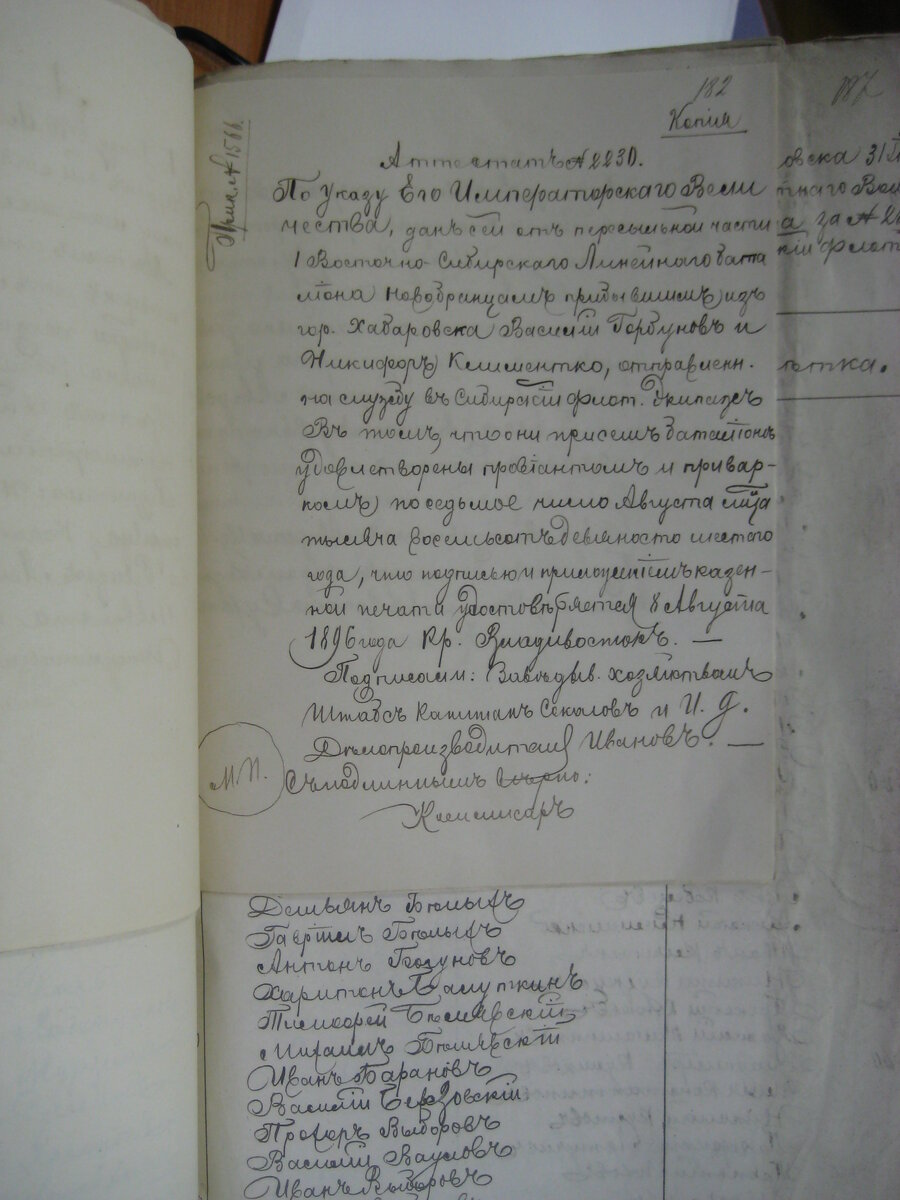 182
Копія
Аттестатъ № 2230.
По Указу Его Императорскаго Вели
чества, данъ сей отъ пересыльной части
1 Восточно-Сибирскаго Линейнаго бата
ліона новобранцамъ прибывшимъ изъ
гор. Хабаровска Василій Горбуновъ и
Никифоръ Климентко, отправленн.
на службу въ Сибирскій флот. Экипажъ
Въ томъ, что они при семъ баталіонѣ
удовлетворены провіантомъ и привар-
комъ по седьмое число Августа мѣсяца
тысяча восемьсотъ девяносто шестого
года, что подписью и приложеніемъ казен-
ной печати удостовѣряется 8 Августа
1896 года Кр. Владивостокъ. —
Подписали: Завѣдыв. хозяйствомъ
Штабсъ Капитанъ Секаловъ и И. д.
Дѣлопроизводителя Ивановъ. —
М.П.
Съ подлиннымъ вѣрно:
Комисаръ
Демьянъ Бѣлыхъ
Гавріилъ Бѣлыхъ
Антонъ Годуновъ
Харитонъ Балуткинъ
Тимофей
Михаилъ
Иванъ Барановъ
Василій Березовскій
Прохоръ Выборовъ
Василій Вауловъ
Иванъ
овска 31
тнаго
а за №
кій флот
ътка.
187
Прил. № 1566.